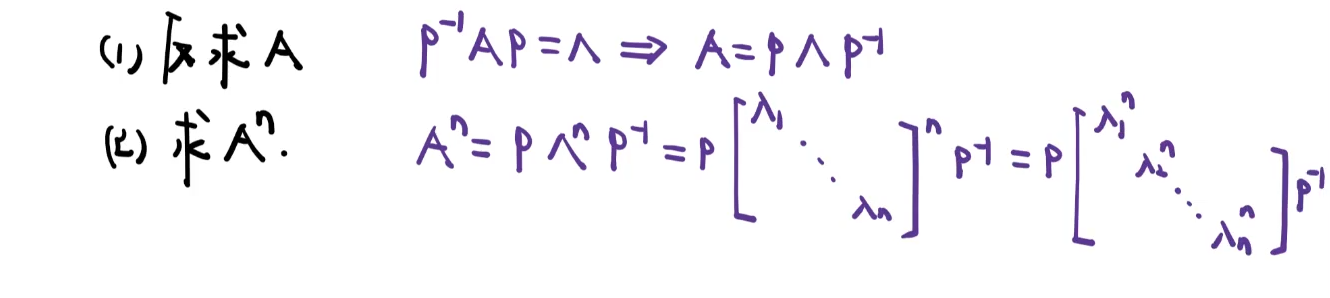 (1) 反求A P⁻¹AP=Λ ⇒ A=PΛP⁻¹
(2) 求Aⁿ. Aⁿ=PΛⁿP⁻¹=P[λ₁ ⋱ λₙ]ⁿP⁻¹=P[λ₁ⁿ λ₂ⁿ ⋱ λₙⁿ]P⁻¹